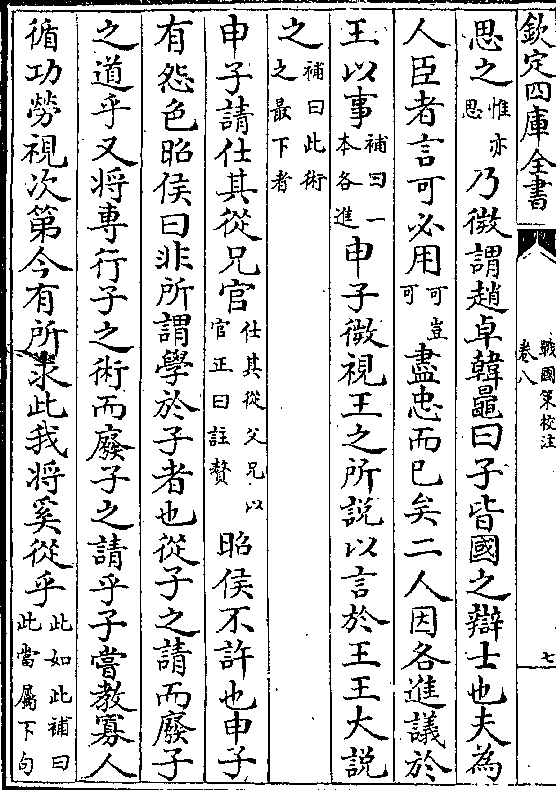 欽定四庫全書
戰國策校注
卷八
七
思之惟亦思乃微謂趙卓韓鼂曰子皆國之辯士也夫為
人臣者言可必用可豈可盡忠而已矣二人因各進議於
王以事補曰一本各進申子微視王之所説以言於王王大説
之補曰此術之最下者
申子請仕其從兄官仕其從父兄以官正曰註贅昭侯不許也申子
有怨色昭侯曰非所謂學於子者也從子之請而廢子
之道乎又将專行子之術而廢子之請乎子嘗教寡人
循功勞視次第今有所求此我将奚從乎此如此補曰此當屬下句